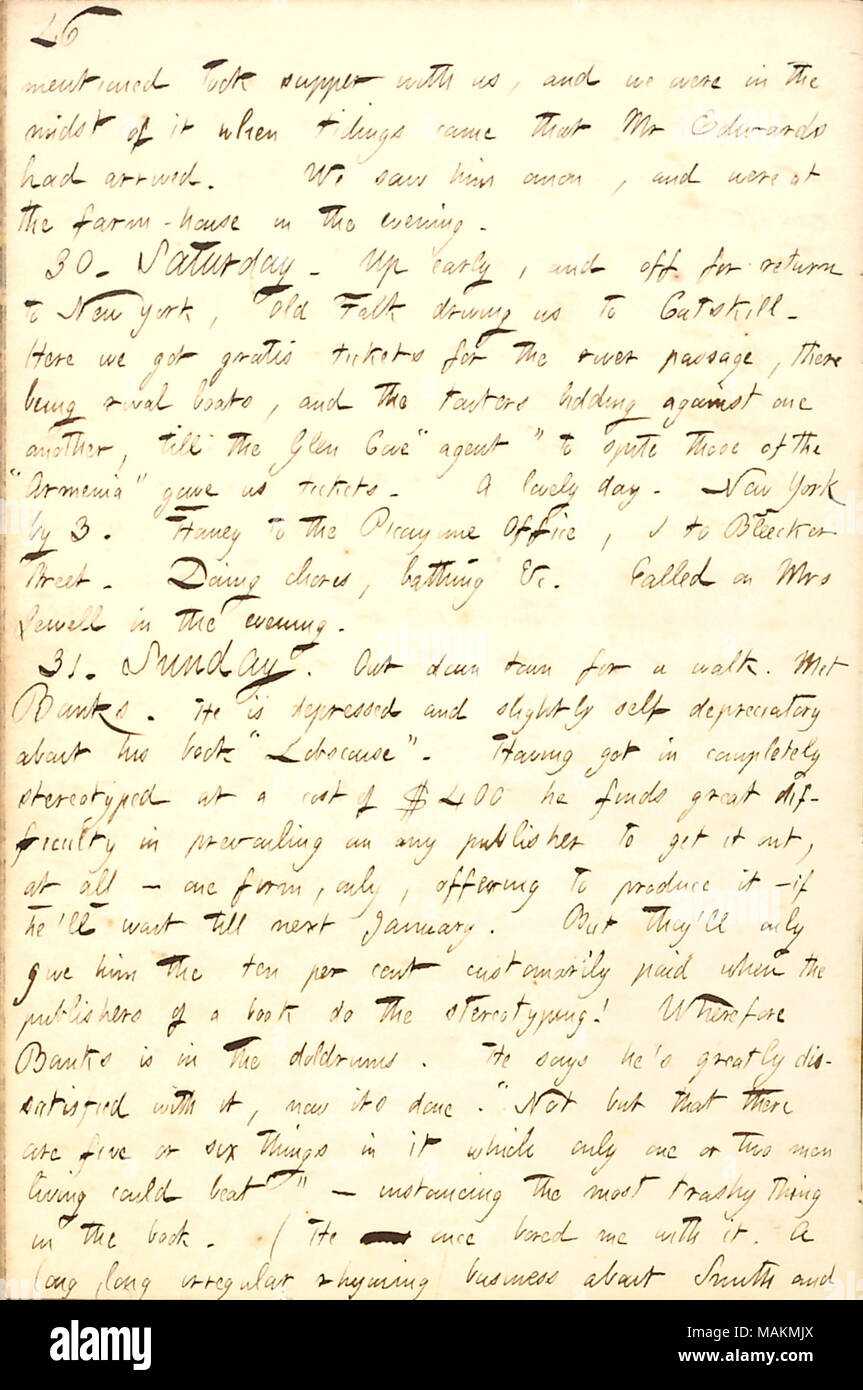 46
mentioned took supper with us, and we were in the
midst of it when tidings came that Mr Edwards
had arrived. We saw him anon, and were at
the farm-house in the evening.
30. Saturday. Up early, and off for return
to New York, Old Falk driving us to Catskill.
Here we got gratis tickets for the river passage, there
being rival boats, and the touters bidding against one
another, till the Glen Cove "agent" to spite those of the
"Armenia" gave us tickets. A lovely day. New York
by 3. Haney to the Picayune Office, I to Bleecker
Street. Doing chores, bathing &c. Called on Mrs
Sewell in the evening.
31. Sunday. Out down town for a walk. Met
Banks. He is depressed and slightly self depreciatory
about his book "Lobscouse". Having got in completely
stereotyped at a cost of $400 he finds great dif-
ficulty in prevailing on any publisher to get it out,
at all — one firm, only, offering to produce it — if
he'll wait till next January. But they'll only
give him the ten per cent customarily paid when the
publishers of a book do the stereotyping! Wherefore
Banks is in the doldrums. He says he's greatly dis-
satisfied with it, now its done. "Not but that there
are five or six things in it which only one or two men
living could beat" — instancing the most trashy thing
in the book. (He once bored me with it. A
long, long irregular rhyming business about Smith and
alamy
Image ID: MAKMJX
www.alamy.com